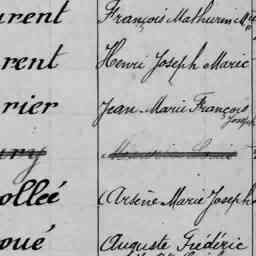 urent François Mathurin M
rent Henri Joseph Marie
rier Jean Marie François
Joseph
ury
ollée Arsène Marie Joseph
oué Auguste Frédéric